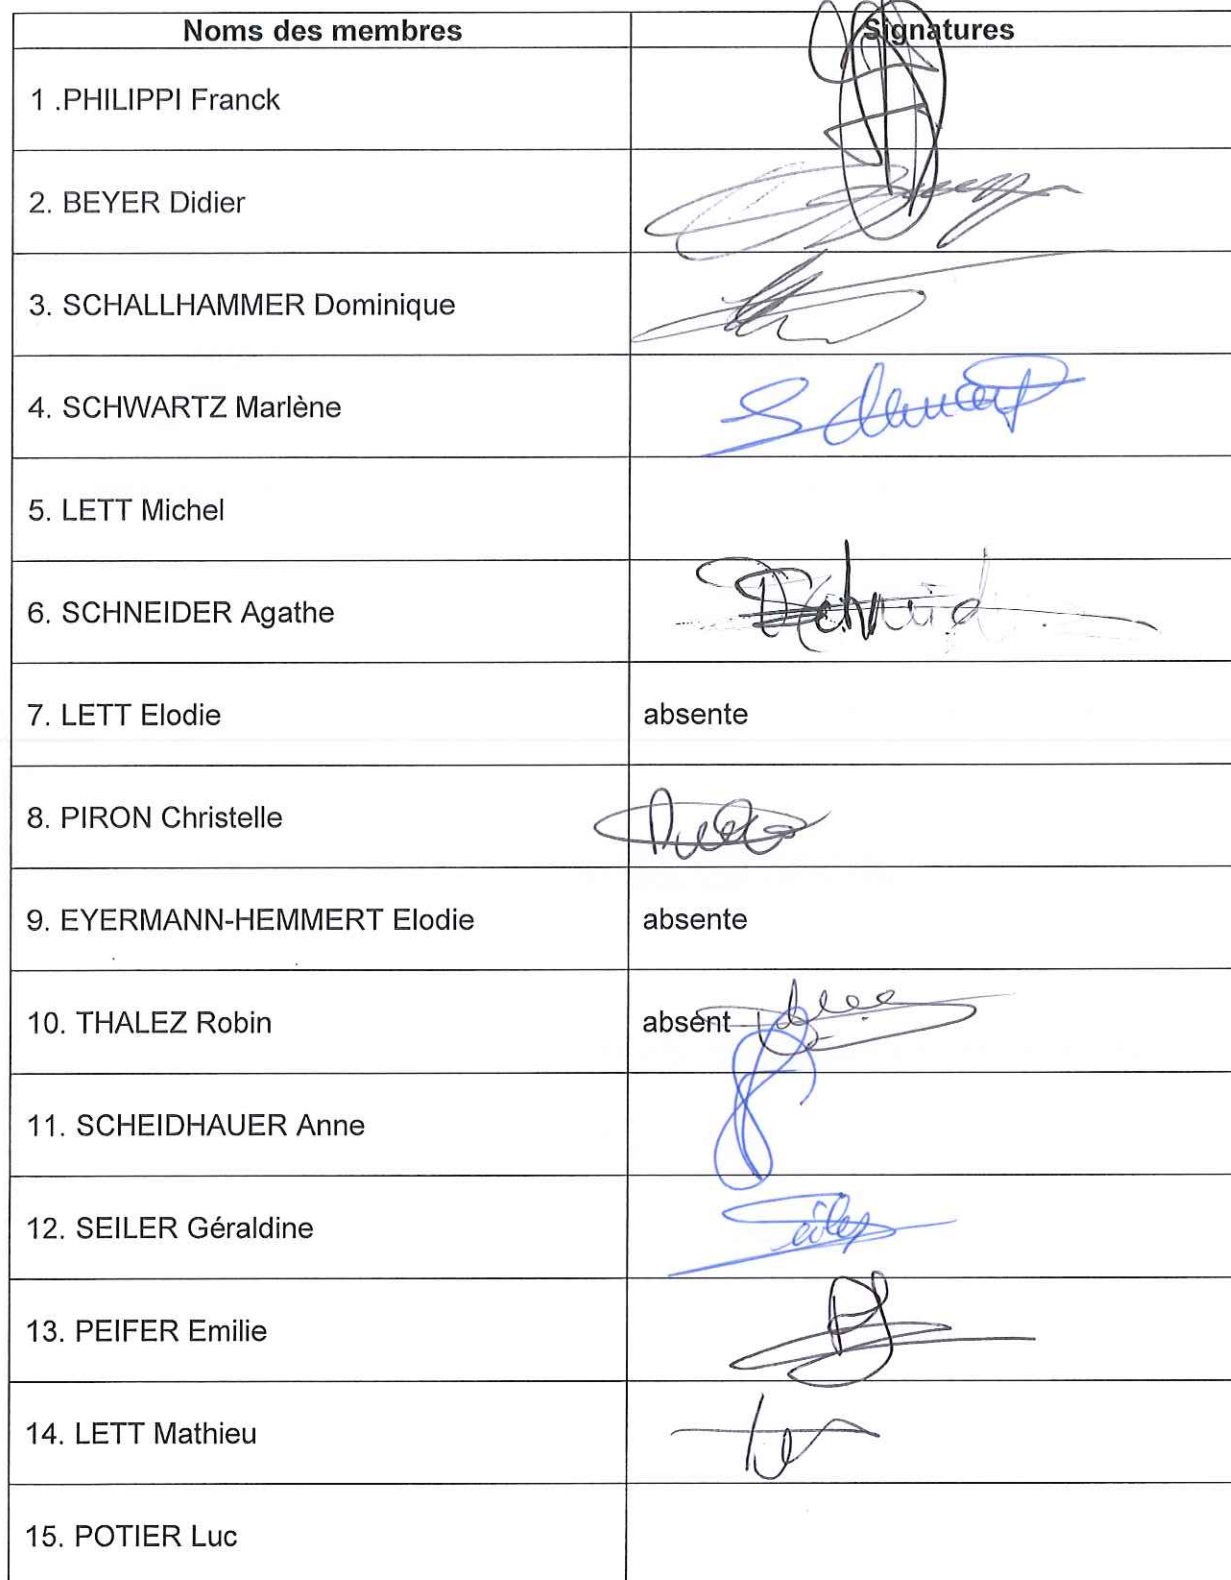 Noms des membres Signatures
1 .PHILIPPI Franck
2. BEYER Didier
3. SCHALLHAMMER Dominique
4. SCHWARTZ Marlène
5. LETT Michel
6. SCHNEIDER Agathe
7. LETT Elodie absente
8. PIRON Christelle
9. EYERMANN-HEMMERT Elodie absente
10. THALEZ Robin absent
11. SCHEIDHAUER Anne
12. SEILER Géraldine
13. PEIFER Emilie
14. LETT Mathieu
15. POTIER Luc